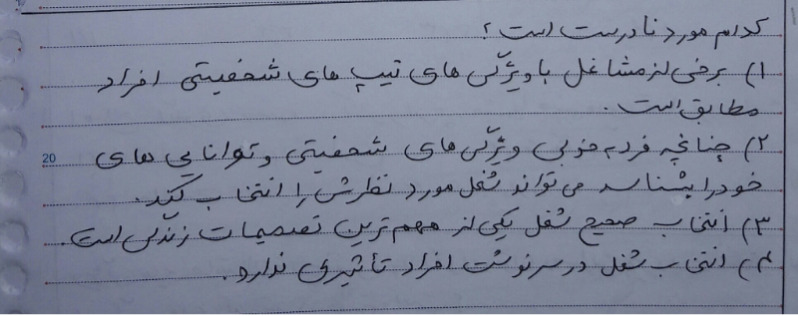 کدام مورد نادرست است؟
۱) برخی از مشاغل با ویژگی های تیپ های شخصیتی افراد
مطابق است.
۲) چنانچه فرد به خوبی ویژگی های شخصیتی و توانایی های
20
خود را بشناسد می تواند شغل مورد نظرش را انتخاب کند.
۳) انتخاب صحیح شغل یکی از مهم ترین تصمیمات زندگی است.
۴) انتخاب شغل در سرنوشت افراد تأثیری ندارد.